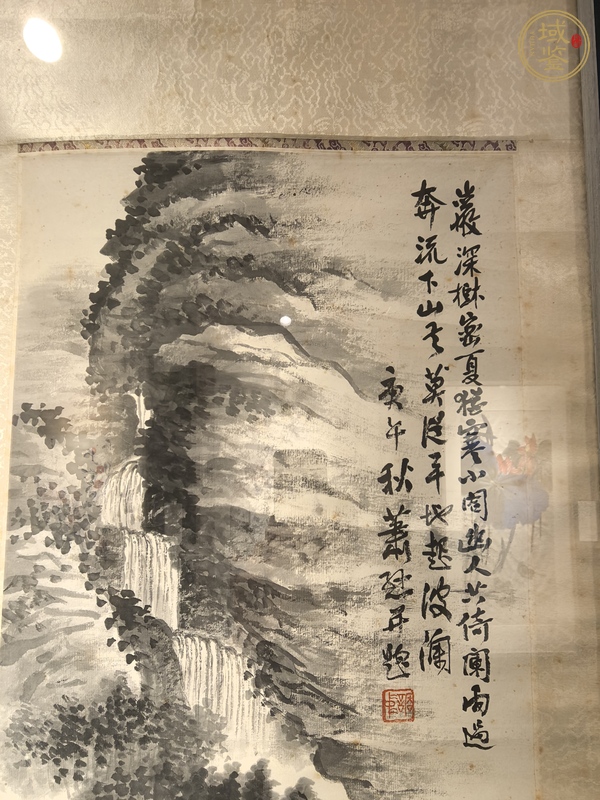 巖深樹密夏猶寒小閣幽人共倚闌雨過
奔流下山去莫從平地起波瀾
庚午秋蕭愻并題
域鉴